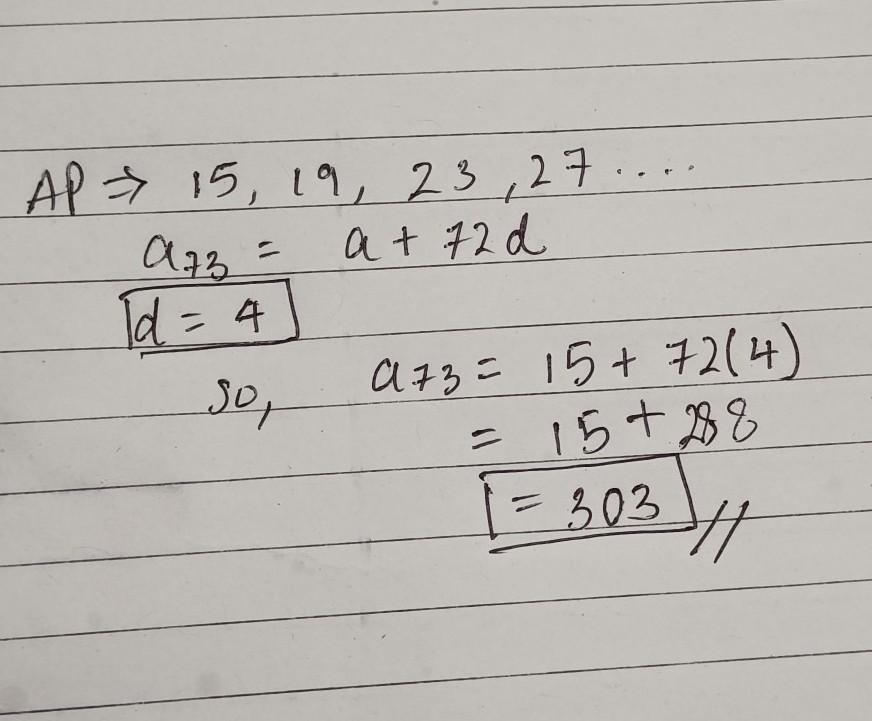 AP ⇒ 15, 19, 23, 27 ....
a₇₃ = a + 72d
d = 4
so, a₇₃ = 15 + 72(4)
= 15 + 288
= 303 //